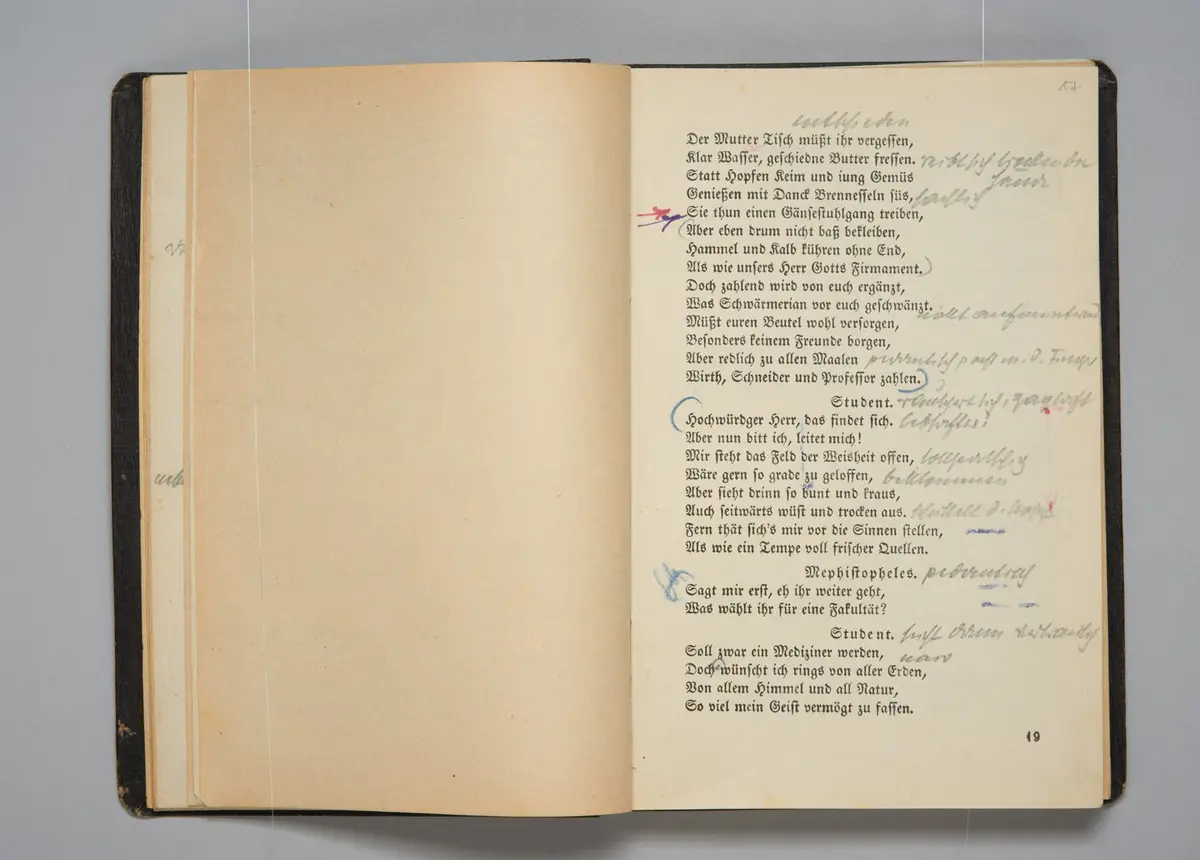 57
entschieden
Der Mutter Tisch müßt ihr vergessen,
Klar Wasser, geschiedne Butter fressen.
Statt Hopfen Keim und iung Gemüs
Genießen mit Danck Brennesseln süs,
Sie thun einen Gänsestuhlgang treiben,
Aber eben drum nicht baß bekleiben,
Hammel und Kalb kühren ohne End,
Als wie unsers Herr Gotts Firmament.
Doch zahlend wird von euch ergänzt,
Was Schwärmerian vor euch geschwänzt.
Müßt euren Beutel wohl versorgen,
Besonders keinem Freunde borgen,
Aber redlich zu allen Maalen
Wirth, Schneider und Professor zahlen.
Student.
Hochwürdger Herr, das findet sich.
Aber nun bitt ich, leitet mich!
Mir steht das Feld der Weisheit offen,
Wäre gern so grade zu geloffen, beklommen
Aber sieht drinn so bunt und kraus,
Auch seitwärts wüst und trocken aus.
Fern thät sich's mir vor die Sinnen stellen,
Als wie ein Tempe voll frischer Quellen.
Mephistopheles.
Sagt mir erst, eh ihr weiter geht,
Was wählt ihr für eine Fakultät?
Student.
Soll zwar ein Mediziner werden, naiv
Doch wünscht ich rings von aller Erden,
Von allem Himmel und all Natur,
So viel mein Geist vermögt zu fassen.
19